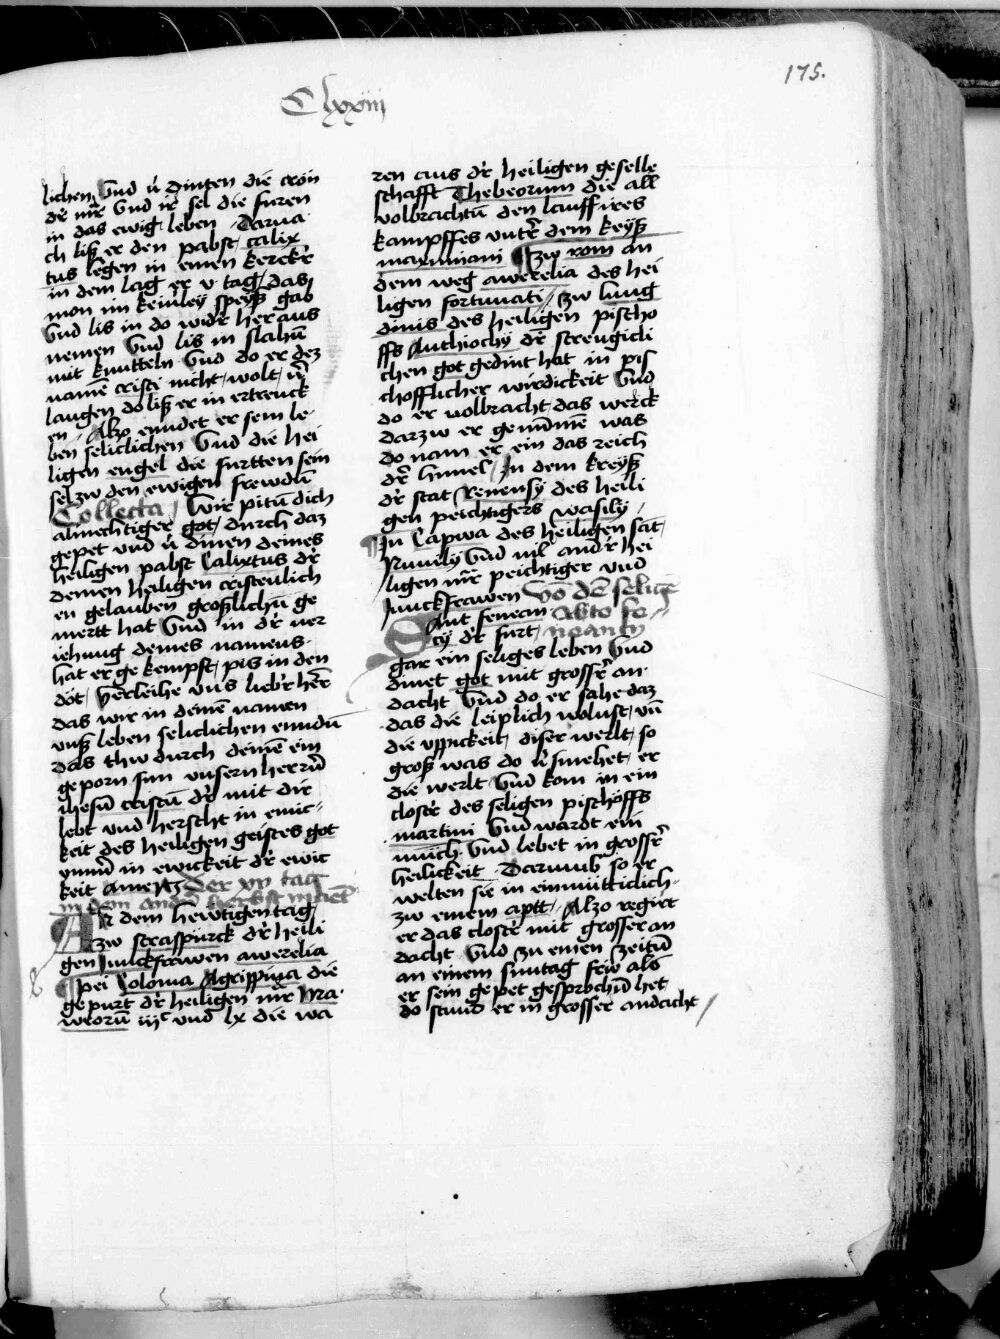 175.
Clxxiij
lichen Vnd v̈ dinten die cron
dr̕ mr̕r Vnd ir̕ sel die furen
in das ewig leben Darna
ch liß er den pabst calix
tus legen in einen kerckr̕
in dem lag er v tag das
mon im keinley speyß gab
Vnd lis in do widr̕ heraus
nemen Vnd lis in slahn̄
mit knutteln Vnd do er dez
namē cristi nicht wolt v̈
laugen do liß er in ertrenck
en Alzo enndet er sein le
ben seliclichen Vnd die hei
ligen engel die furtten sein
sel zw den ewigen frewdn̄
Collecta Wir pitn̄ dich
almechtiger got durch daz
gepet vnd v̈ dinen deines
heiligen pabst Calixtus dr̕
deinen heiligen cristenlich
en gelauben großlichn̄ ge
mertt hat Vnd in dr̕ ver
iehung deines namens
hat er ge kempft pis in den
dot Verleihe vns liebr̕ her̄
das wir in deinē namen
vnß leben seliclichen enndn̄
das thw durch deinē ein
geporn sun vnsern herrn̄
ihesū cristū dr̕ mit dir
lebt vnd herscht in einic
keit des heiligen geistes got
ymm̄ in ewickeit dr̕ ewic
keit Amen Der xvj tag
in dem andr̕n herbst mōet
An dem hewtigen tag
zw straspurck dr̕ heili
gen junckfrawen awrelia
pei Colonia Agrippina die
gepurt dr̕ heiligen mr̕r Ma
wrorū iijc vnd lx die wa
ren aus dr̕ heiligen geselle
schafft Thebeorum die all
volbrachtn̄ den lauff ires
kampffes vntr̕ dem keyß
maximiani Zw rom an
dem weg awrelia des hei
ligen fortunati zw lung
dinis des heiligen pischo
ffs Anthiochy dr̕ strengicli
chen got gedint hat in pis
chofflicher wirdickeit Vnd
do er volbracht das werck
darzw er genūmē was
do nam er ein das reich
dr̕ himel In dem kreyß
dr̕ stat Renensy des heili
gen peichtigers wasily
In Capwa des heiligen sat
Nivily Vnd vil andr̕ hei
ligen mr̕r peichtiger vnd
junckfrawen Vō dē seligē
Sant senean Abto se
cy dr̕ furt noanem
gar ein seliges leben Vnd
dinet got mit grossr̕ an
dacht Vnd do er sahe daz
das die leiplich wolust vn̄
die vppickeit diser werlt so
groß was do v̈ smehet er
die werlt Vnd kom in ein
clostr̕ des seligen pischoffs
martini Vnd wardt ein
münch Vnd lebet in grossr̕
heilickeit Darumb so er
welten sie in einmutticlich
zw einem aptt Alzo regirt
er das clostr̕ mit grosser an
dacht Vnd zu einen zeitn̄
an einem suntag frw als
er sein gepet gesprochn̄ het
do stund er in grosser andacht